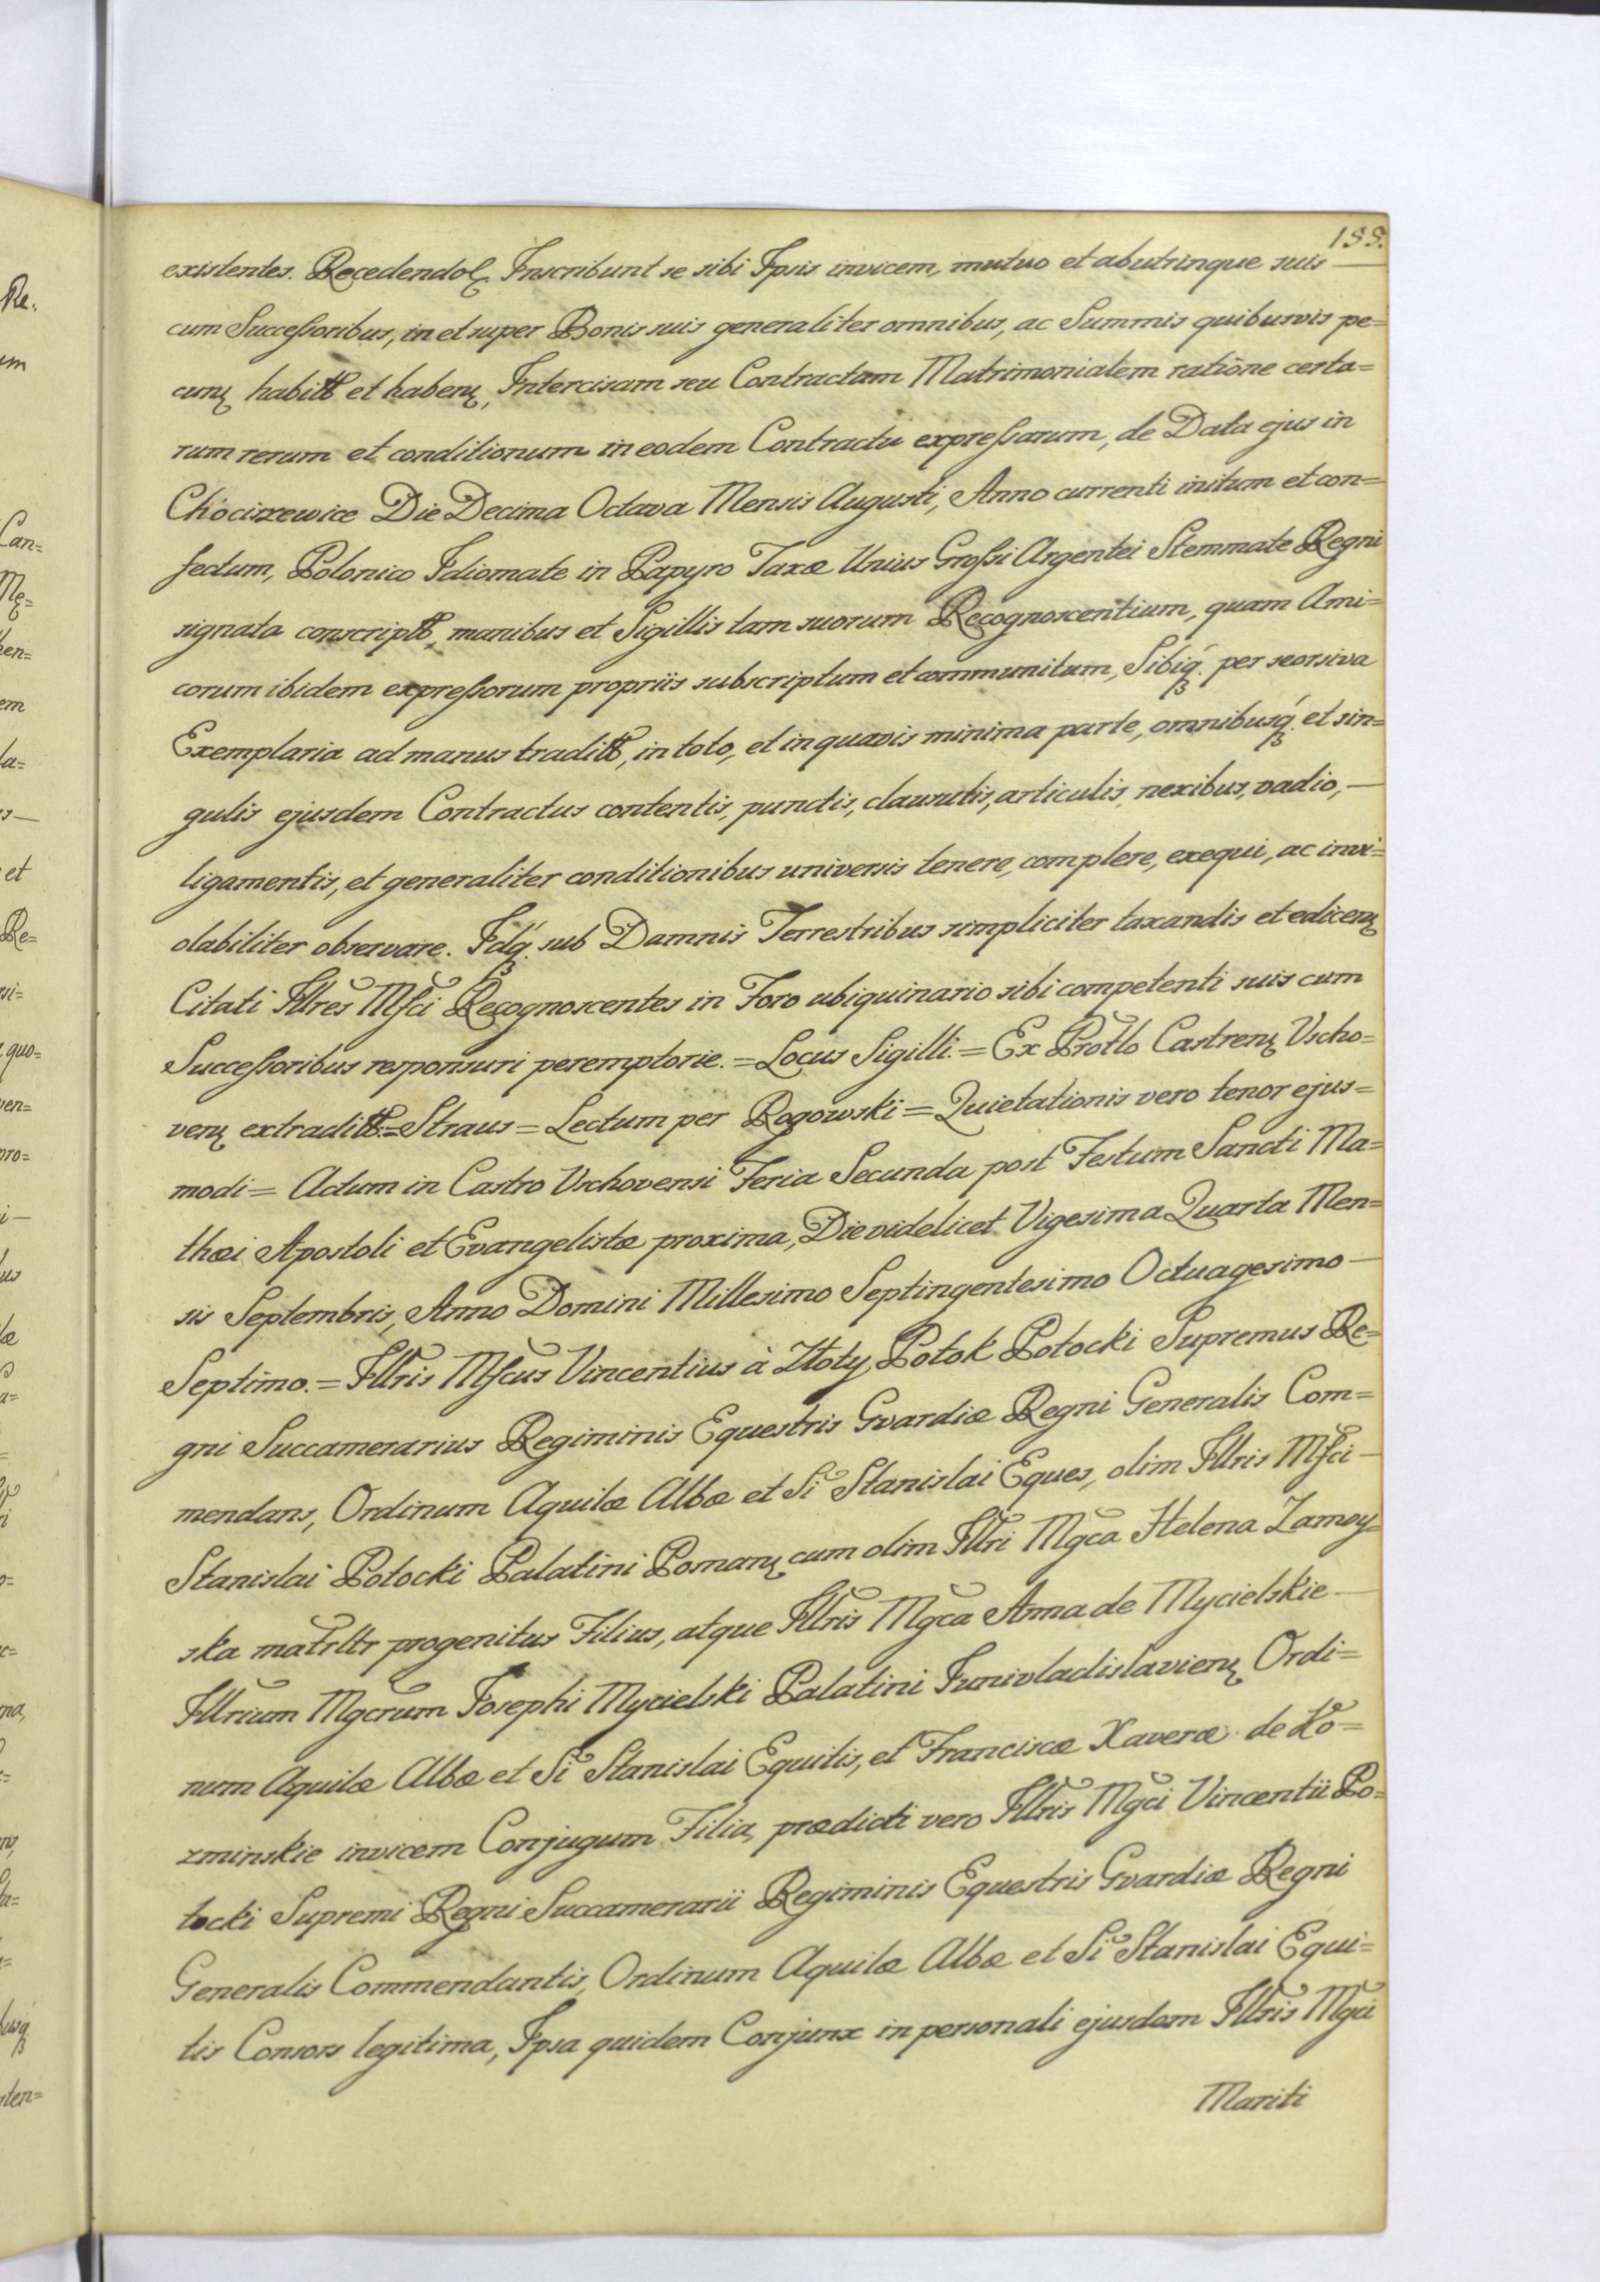 155.
existentes. Recedendoq Inscribunt se sibi Ipsis invicem, mutuo et abutrinque suis —
cum Successoribus, in et super Bonis suis generaliter omnibus, ac Summis quibusvis pe=
cunę habitt et habenę, Intercisam seu Contractum Matrimonialem ratiõne certa=
rum rerum et conditionum in eodem Contractu expressarum, de Data ejus in
Chociszewice Die Decima Octava Mensis Augusti, Anno currenti initum et con=
fectum, Polonico Idiomate in Papyro Taxæ Unius Grossi Argentei Stemmate Regni
signata conscriptt, manibus et Sigillis tam suorum Recognoscentium, quam Ami=
corum ibidem expressorum propriis subscriptum et communitum, Sibiq. per seorsiva
Exemplaria ad manus traditt, in toto, et in quavis minima parte, omnibusq. et sin=
gulis ejusdem Contractus contentis, punctis, clausulis, articulis, nexibus, vadio, —
ligamentis, et generaliter conditionibus universis tenere, complere, exequi, ac invi=
olabiliter observare. Idq. sub Damnis Terrestribus simpliciter taxandis et edicenę
Citati Illres Mfci Recognoscentes in Foro ubiquinario sibi competenti suis cum
Successoribus responsuri peremptorie. = Locus Sigilli. = Ex Protlo Castrenę Vscho=
venę extraditt. = Straus = Lectum per Rogowski = Quietationis vero tenor ejus=
modi = Actum in Castro Vschovensi Feria Secunda post Festum Sancti Ma=
thæi Apostoli et Evangelistæ proxima, Die videlicet Vigesima Quarta Men=
sis Septembris, Anno Domini Millesimo Septingentesimo Octuagesimo —
Septimo. = Illris Mfcus Vincentius à Złoty Potok Potocki Supremus Re=
gni Succamerarius Regiminis Equestris Gvardiæ Regni Generalis Com=
mendans, Ordinum Aquilæ Albæ et Si Stanislai Eques, olim Illris Mfci —
Stanislai Potocki Palatini Posnanę cum olim Illri Mgca Helena Zamoy=
ska matrltr progenitus Filius, atque Illris Mgca Anna de Mycielskie —
Illrium Mgcrum Josephi Mycielski Palatini Junivladislavienę Ordi=
num Aquilæ Albæ et Si Stanislai Equitis, et Franciscæ Xaveræ de Ko=
zminskie invicem Conjugum Filia, prædicti vero Illris Mgci Vincentii Po=
tocki Supremi Regni Succamerarii Regiminis Equestris Gvardiæ Regni
Generalis Commendantis, Ordinum Aquilæ Albæ et Si Stanislai Equi=
tis Consors legitima, Ipsa quidem Conjunx in personali ejusdem Illris Mgci
Mariti